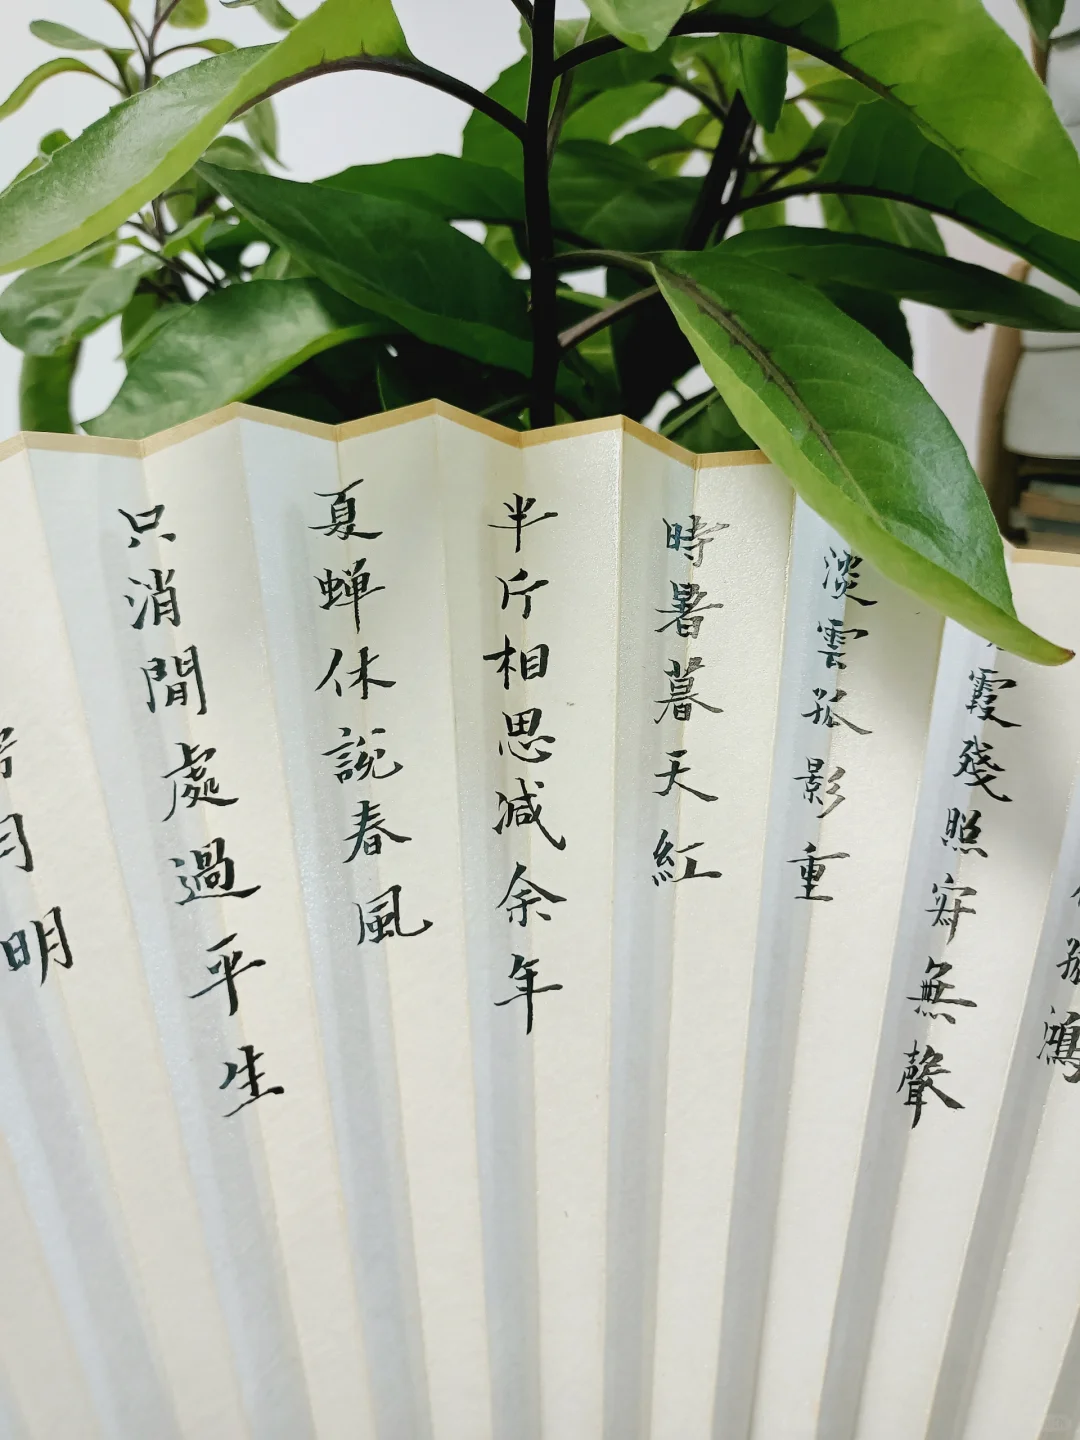 鴻
霞殘照寂無聲
淡雲孤影重
時暑暮天紅
半斤相思減余年
夏蝉休說春風
只消閒處過平生
月明